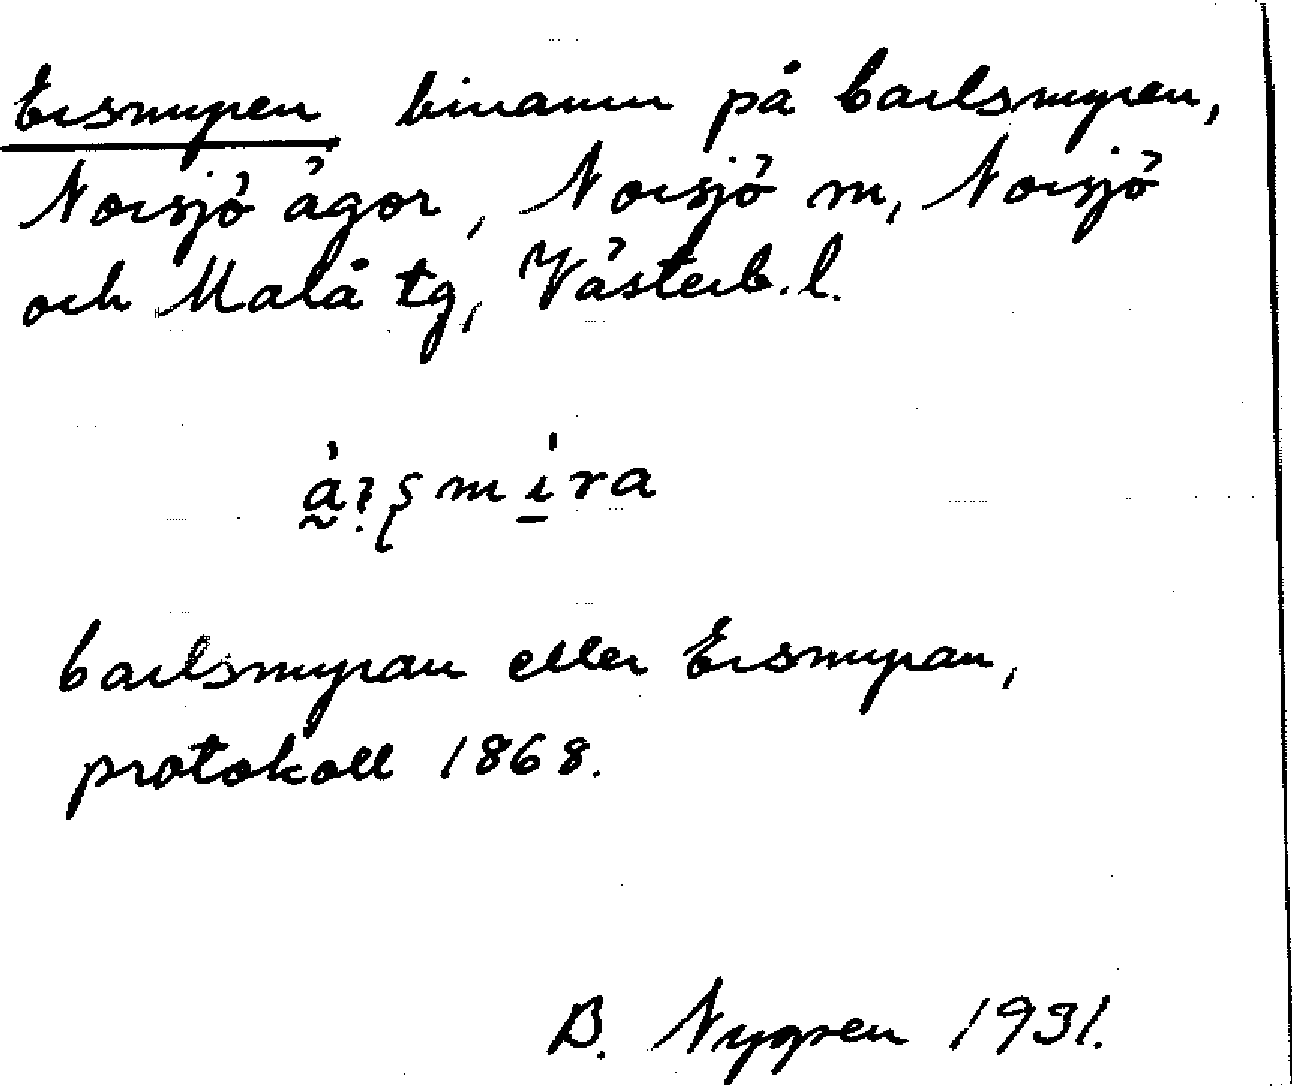 Ersmyren binamn på Carlsmyren,
Norsjö ägor, Norsjö sn, Norsjö
och Malå tg, Västerb. l.
Carlsmyran eller Ersmyran,
protokoll 1868.
B. Nygren 1931.